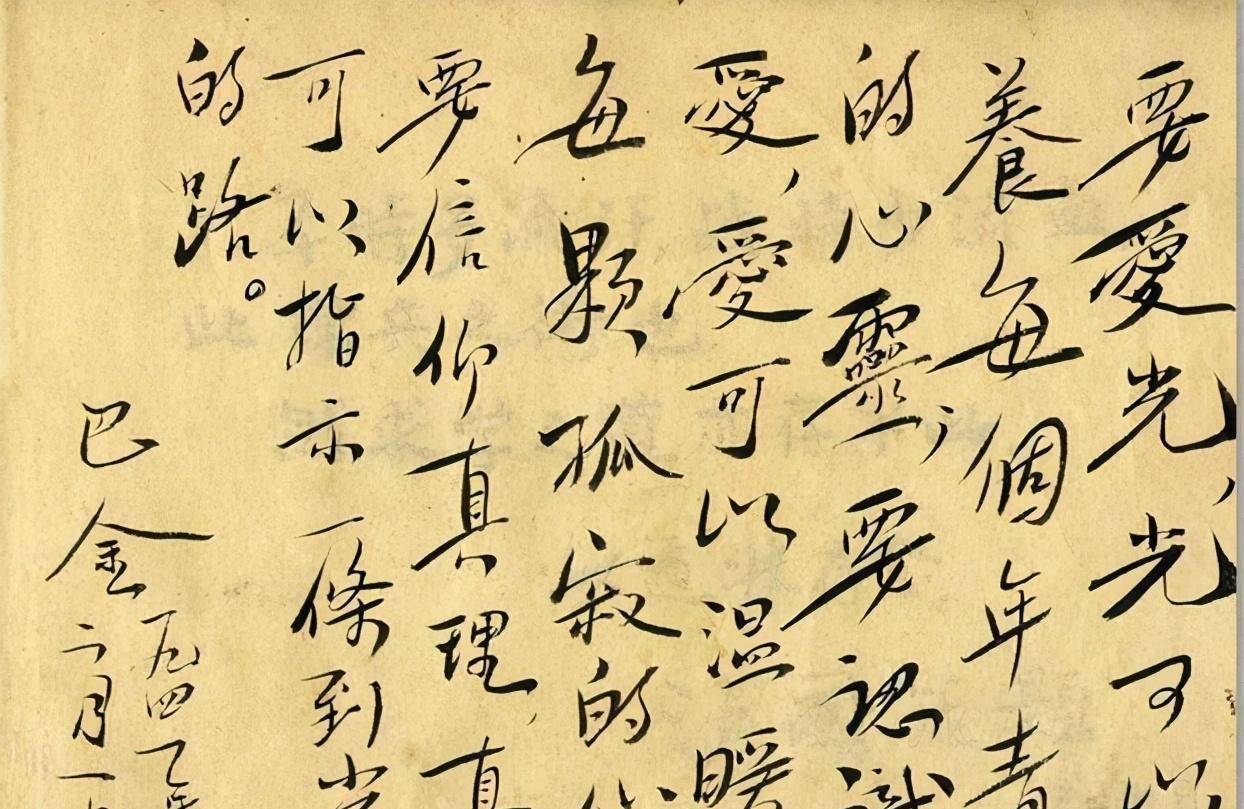 要愛光，光可以
養每個年青
的心靈，要認識
愛，愛可以溫暖
每顆孤寂的心
要信仰真理，真
可以指示一條到光
的路。
巴金
一九四一年
二月一